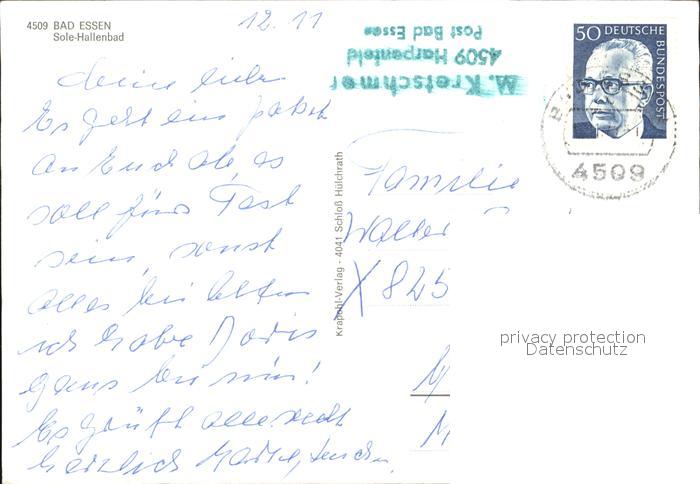 4509 BAD ESSEN
Sole-Hallenbad
12.11
M. Kretschmer
4509 Harpenfeld
Post Bad Essen
50 DEUTSCHE
BUNDESPOST
4509
Meine lieben
Es geht ein Paket
an Euch ab, es
soll fürs Fest
sein, sonst
alles beim alten
ich habe Doris
ganz bei mir!
Es grüßt alle recht
herzlich
Krapohl-Verlag - 4041 Schloß Hülchrath
Familie
Walter
X 825
M
M
privacy protection
Datenschutz